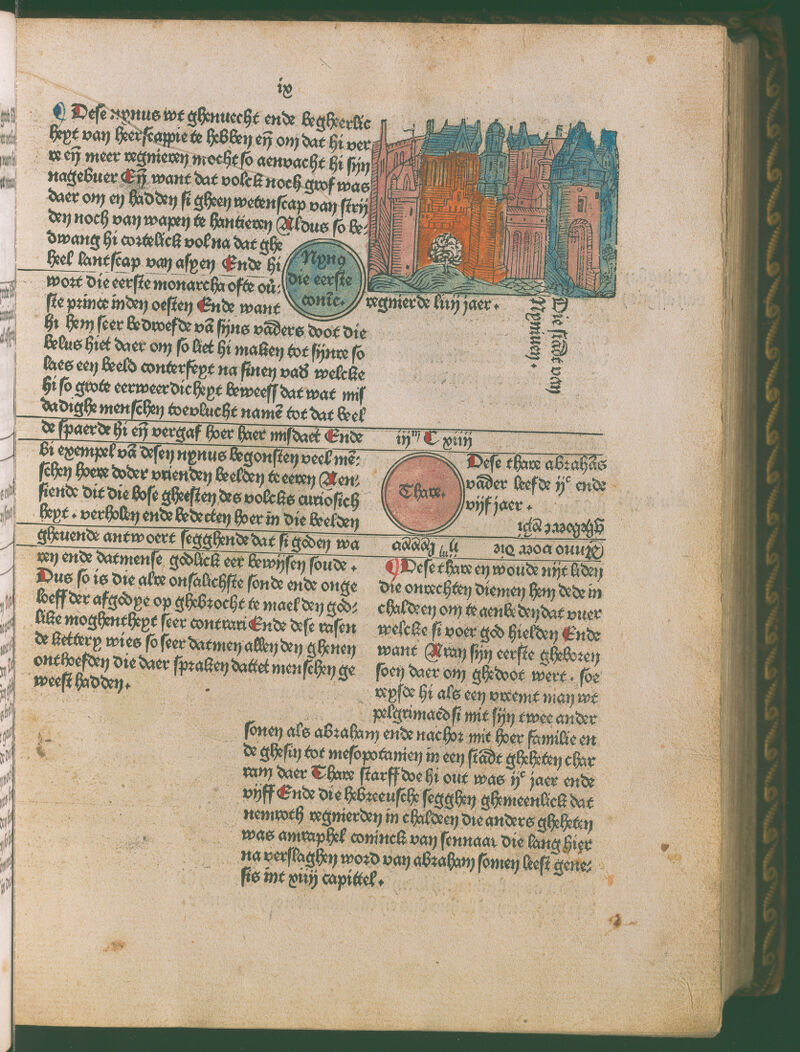 ix
Dese nynus wt ghenuecht ende begheerlic
heyt van heerscappie te hebben en̄ om dat hi ver
re en̄ meer regnieren mocht so aenvacht hi sijn
nagebuer En̄ want dat volck noch grof was
daer om en hadden si gheen wetenscap van strij
den noch van wapen te hantieren Aldus so be⸗
dwang hi cortelick vol na dat ghe
heel lantscap van asyen Ende hi
wort die eerste monarcha ofte ou̅⸗
ste prince inden oesten Ende want
hi hem seer bedroefde vā sijns vaders doot die
belus hiet daer om so liet hi maken tot sijnre so
laes een beeld conterfeyt na sinen vad̄ welcke
hi so grote eerweerdicheyt beweess dat wat mis
dadighe menschen toevlucht namē tot dat beel
de spaerde hi en̄ vergaf hoer haer misdaet Ende
bi exempel vā desen nynus begonsten veel mē⸗
schen hoere doder vrienden beelden te eeren Aen⸗
siende dit die bose gheesten des volcks curiosich
heyt . verholen ende bedecten hoer in die beelden
gheuende antwoert segghende dat si goden wa
ren ende datmense godlick eer bewijsen soude .
Dus so is die alre onsalichste sonde ende onge
loeff der afgodye op ghebrocht te mael den god⸗
like moghentheyt seer contrari Ende dese rasen
de kettery wies so seer datmen allen den ghenen
onthoefden die daer spraken dattet menschen ge
weest hadden .
Nynꝰ
die eerste
coninc .
regnierde liiij jaer .
Die stadt van
Nyniuen .
iijᵐ C xiiij
Thare .
Dese thare abrahās
vader leefde ijᶜ ende
vijf jaer .
Dese thare en woude nijt liden
die onrechten diemen hem dede in
chaldeen om te aenbeden dat vuer
welcke si voer god hielden Ende
want Aran sijn eerste gheboren
soen daer om ghedoot wert . soe
reysde hi als een vreemt man wt
pelgrimaedsi mit sijn twee ander
sonen als abraham ende nachor mit hoer familie en
de ghesin tot mesopotamien in een stadt gheheten char
ram daer Thare starff doe hi out was ijᶜ jaer ende
vijff Ende die hebreeusche segghen ghemeenlick dat
nemroth regnierden in chaldeen die anders gheheten
was amraphel coninck van sennaar die lang hier
na verslaghen word van abraham somen leest gene⸗
sis int xiiij capittel .